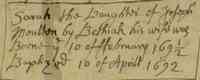 Sarah the Daughter of Joseph
Moulton by Bethiah his wife was
Borne ye 10 of February 169½
Baptized 10 of April 1692